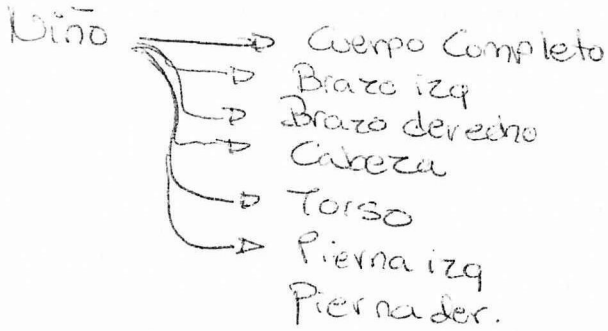 Niño
Cuerpo Completo
Brazo izq
Brazo derecho
Cabeza
Torso
Pierna izq
Pierna der.